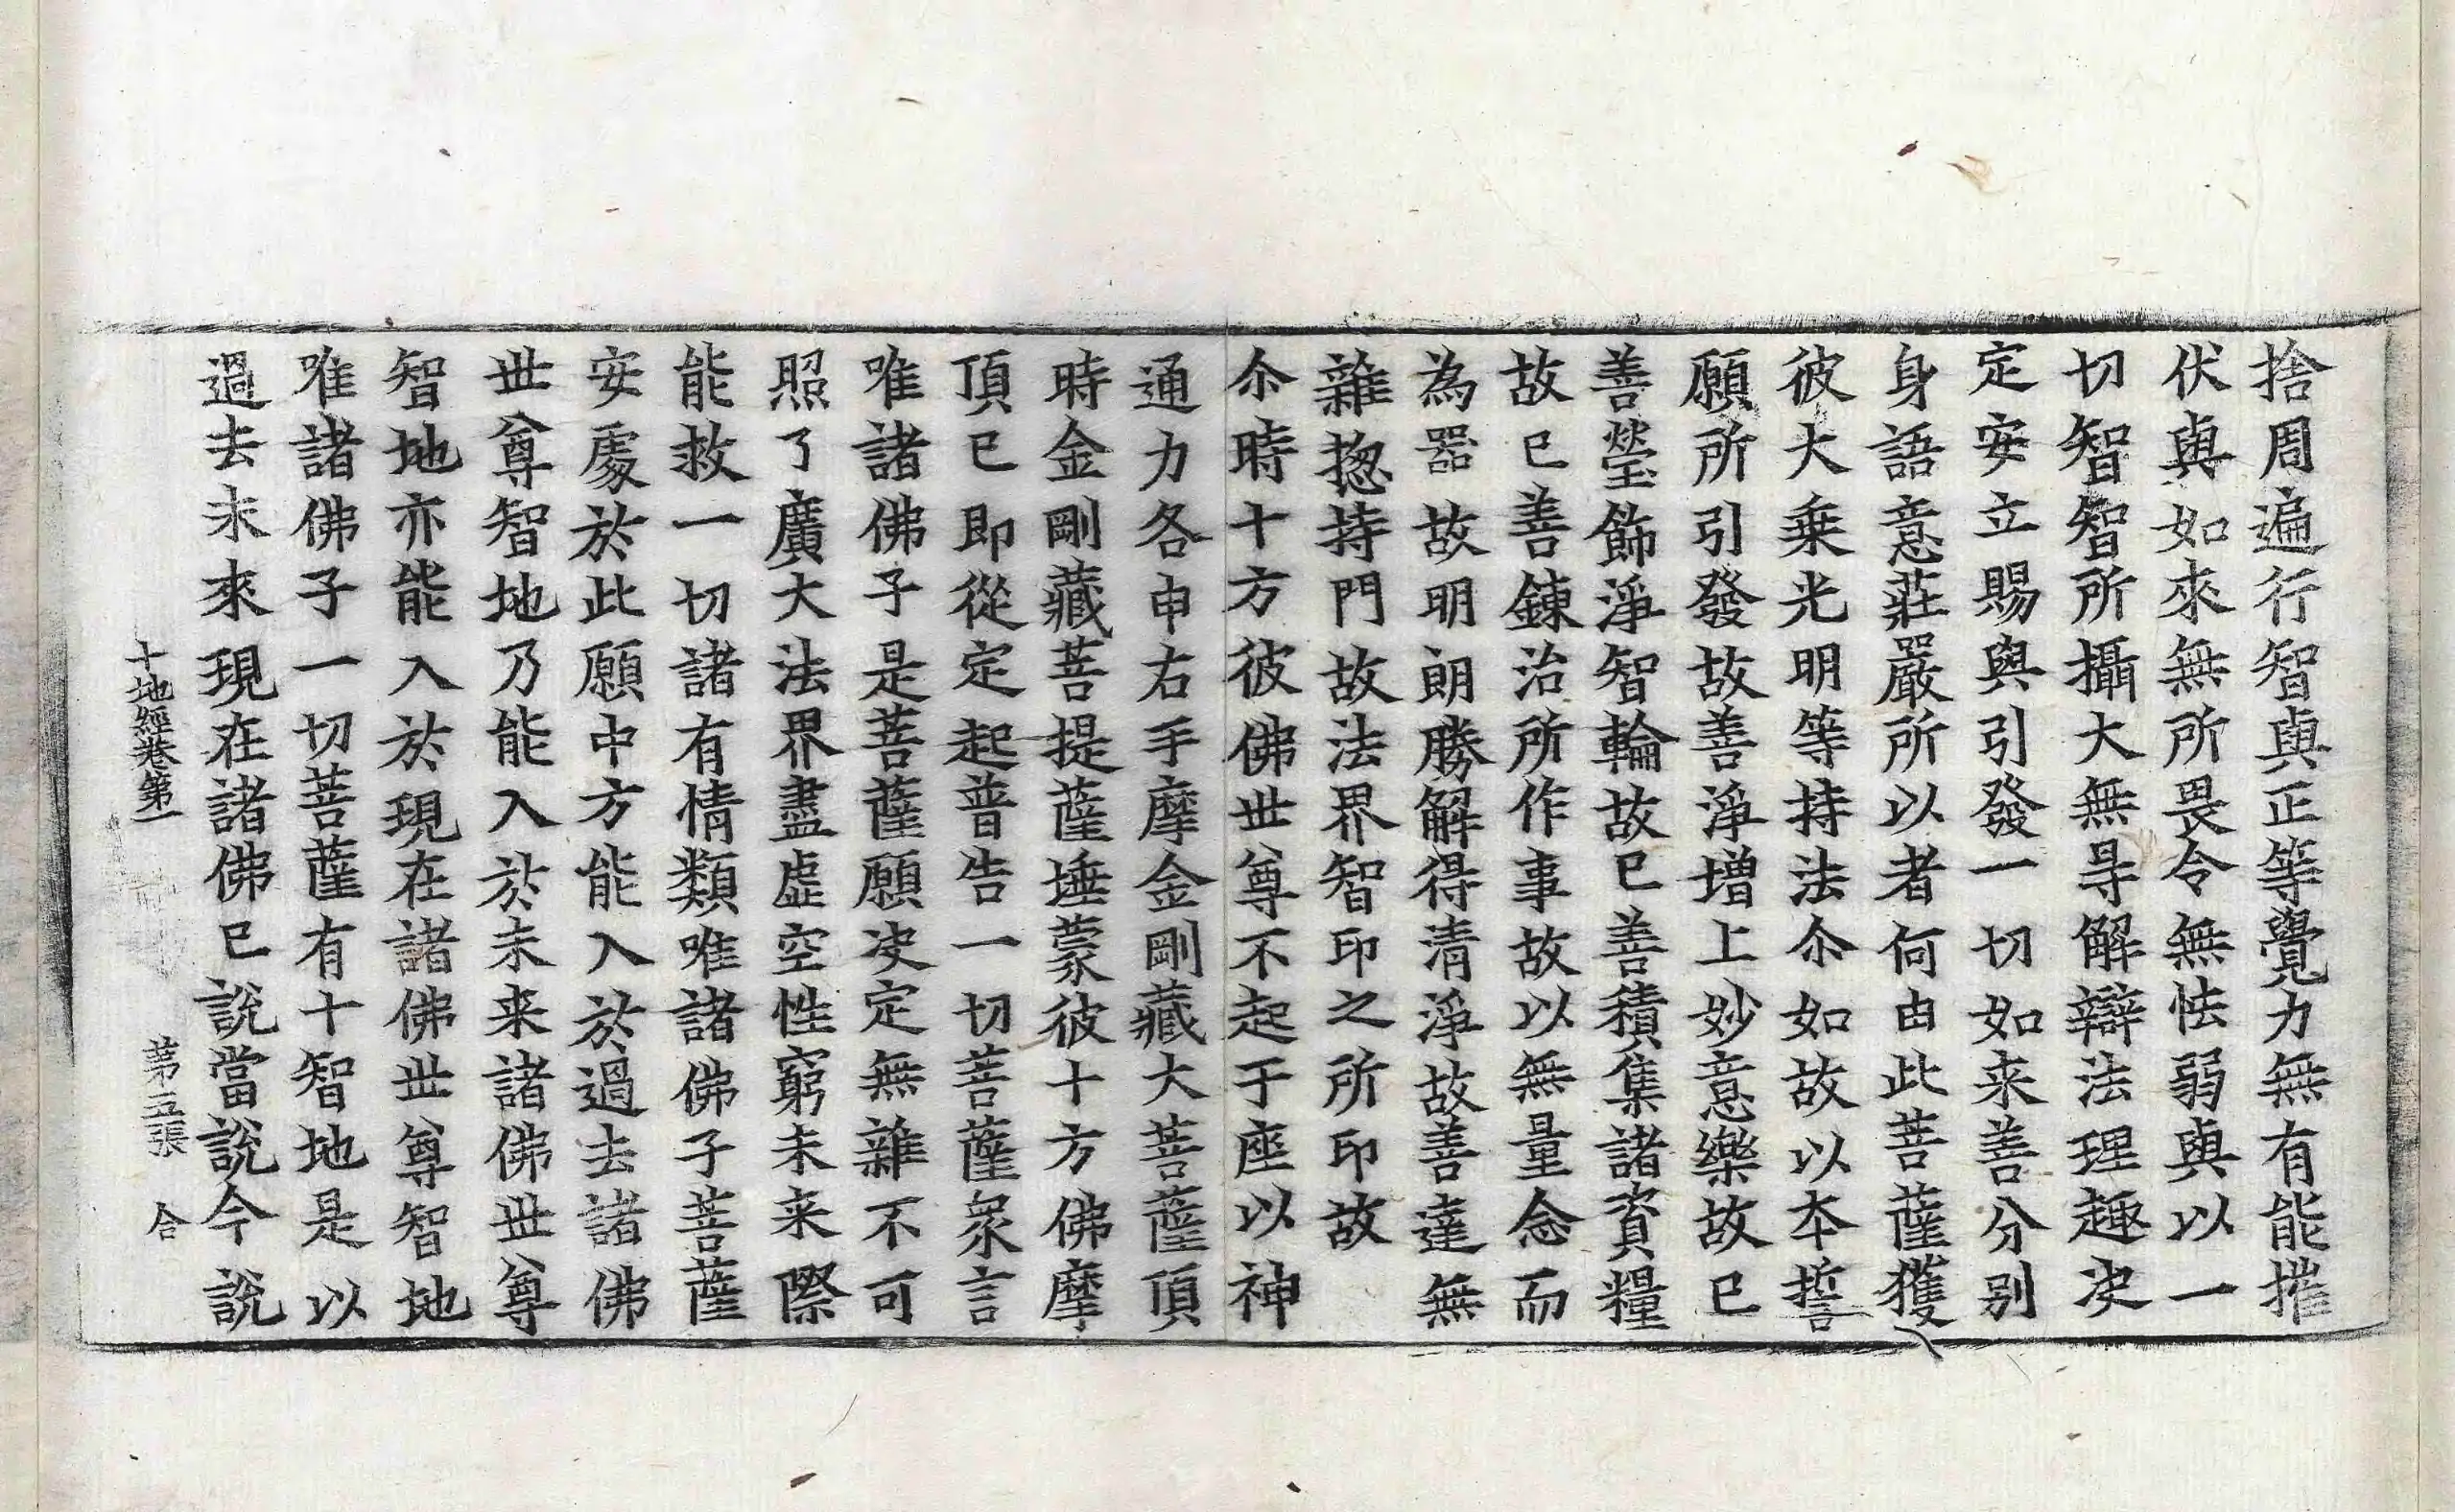 捨周遍行智與正等覺力無有能摧
伏與如來無所畏令無怯弱與以一
切智智所攝大無㝵解辯法理趣决
定安立賜與引發一切如来善分别
身語意莊嚴所以者何由此菩薩獲
彼大乗光明等持法尒如故以夲誓
願所引發故善淨增上妙意樂故已
善瑩飾淨智輪故已善積集諸資糧
故已善鍊治所作事故以無量念而
為器故明朗勝解得清淨故善達無
雜揔持門故法界智印之所印故
尒時十方彼佛世尊不起于座以神
通力各申右手摩金剛藏大菩薩頂
時金剛藏菩提薩埵蒙彼十方佛摩
頂已即從定起普告一切菩薩眾言
唯諸佛子是菩薩願决定無雜不可
照了廣大法界盡虛空性窮未来際
能救一切諸有情類唯諸佛子菩薩
安處於此願中方能入於過去諸佛
世尊智地乃能入於未来諸佛世尊
智地亦能入於現在諸佛世尊智地
唯諸佛子一切菩薩有十智地是以
過去未來現在諸佛已說當說今說
十地經卷第一　第五張　合